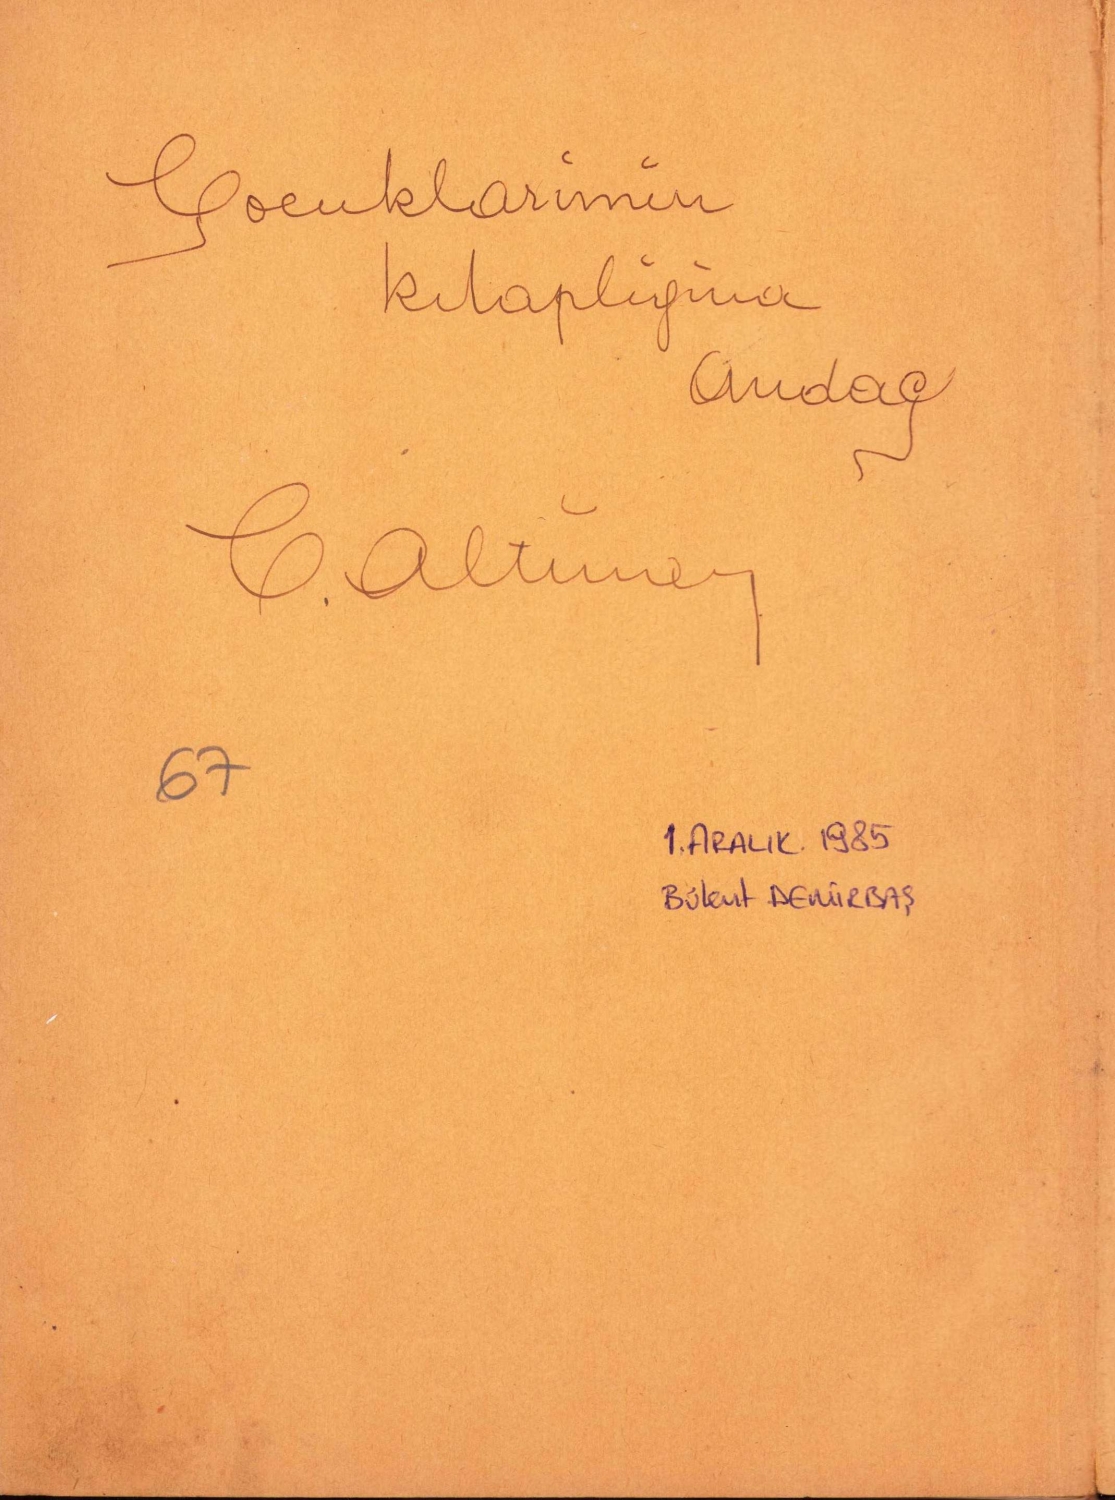 Çocuklarımın
kitaplığına
Andaç
C. Altunay
67
1. ARALIK. 1985
Bülent DEMİRBAŞ